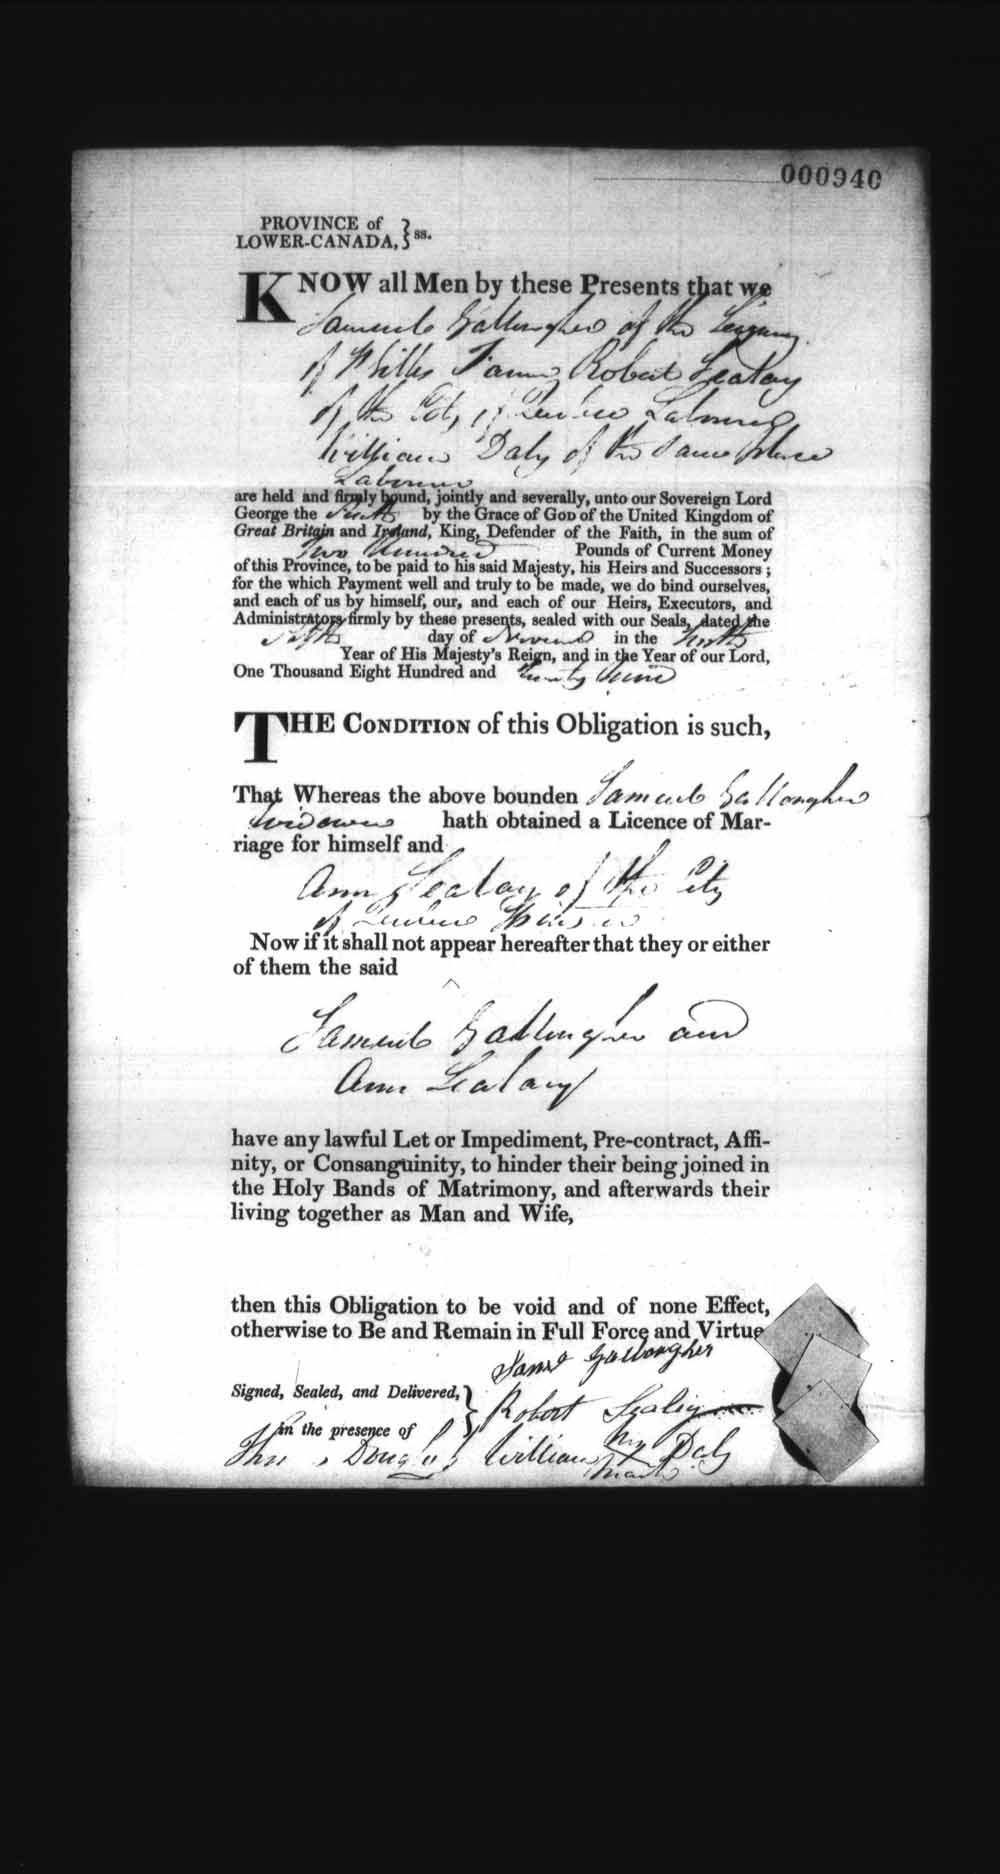 000940
PROVINCE of
LOWER-CANADA, } ss.
KNOW all Men by these Presents that we
Samuel Gallougher of the
of Robert Sealay
of the City of Quebec Labourer
William Daly of the same place
Labourer
are held and firmly bound, jointly and severally, unto our Sovereign Lord
George the by the Grace of GOD of the United Kingdom of
Great Britain and Ireland, King, Defender of the Faith, in the sum of
Two Hundred Pounds of Current Money
of this Province, to be paid to his said Majesty, his Heirs and Successors;
for the which Payment well and truly to be made, we do bind ourselves,
and each of us by himself, our, and each of our Heirs, Executors, and
Administrators firmly by these presents, sealed with our Seals, dated the
day of in the
Year of His Majesty's Reign, and in the Year of our Lord,
One Thousand Eight Hundred and Twenty Nine
THE CONDITION of this Obligation is such,
That Whereas the above bounden Samuel Gallougher
Widower hath obtained a Licence of Mar-
riage for himself and
Ann Sealay of the City
of Quebec Spinster
Now if it shall not appear hereafter that they or either
of them the said
Samuel Gallougher and
Ann Sealay
have any lawful Let or Impediment, Pre-contract, Affi-
nity, or Consanguinity, to hinder their being joined in
the Holy Bands of Matrimony, and afterwards their
living together as Man and Wife,
then this Obligation to be void and of none Effect,
otherwise to Be and Remain in Full Force and Virtue
Saml Gallougher
Signed, Sealed, and Delivered, }
Robert Sealey
in the presence of
Thos Douglas William his X mark Daly